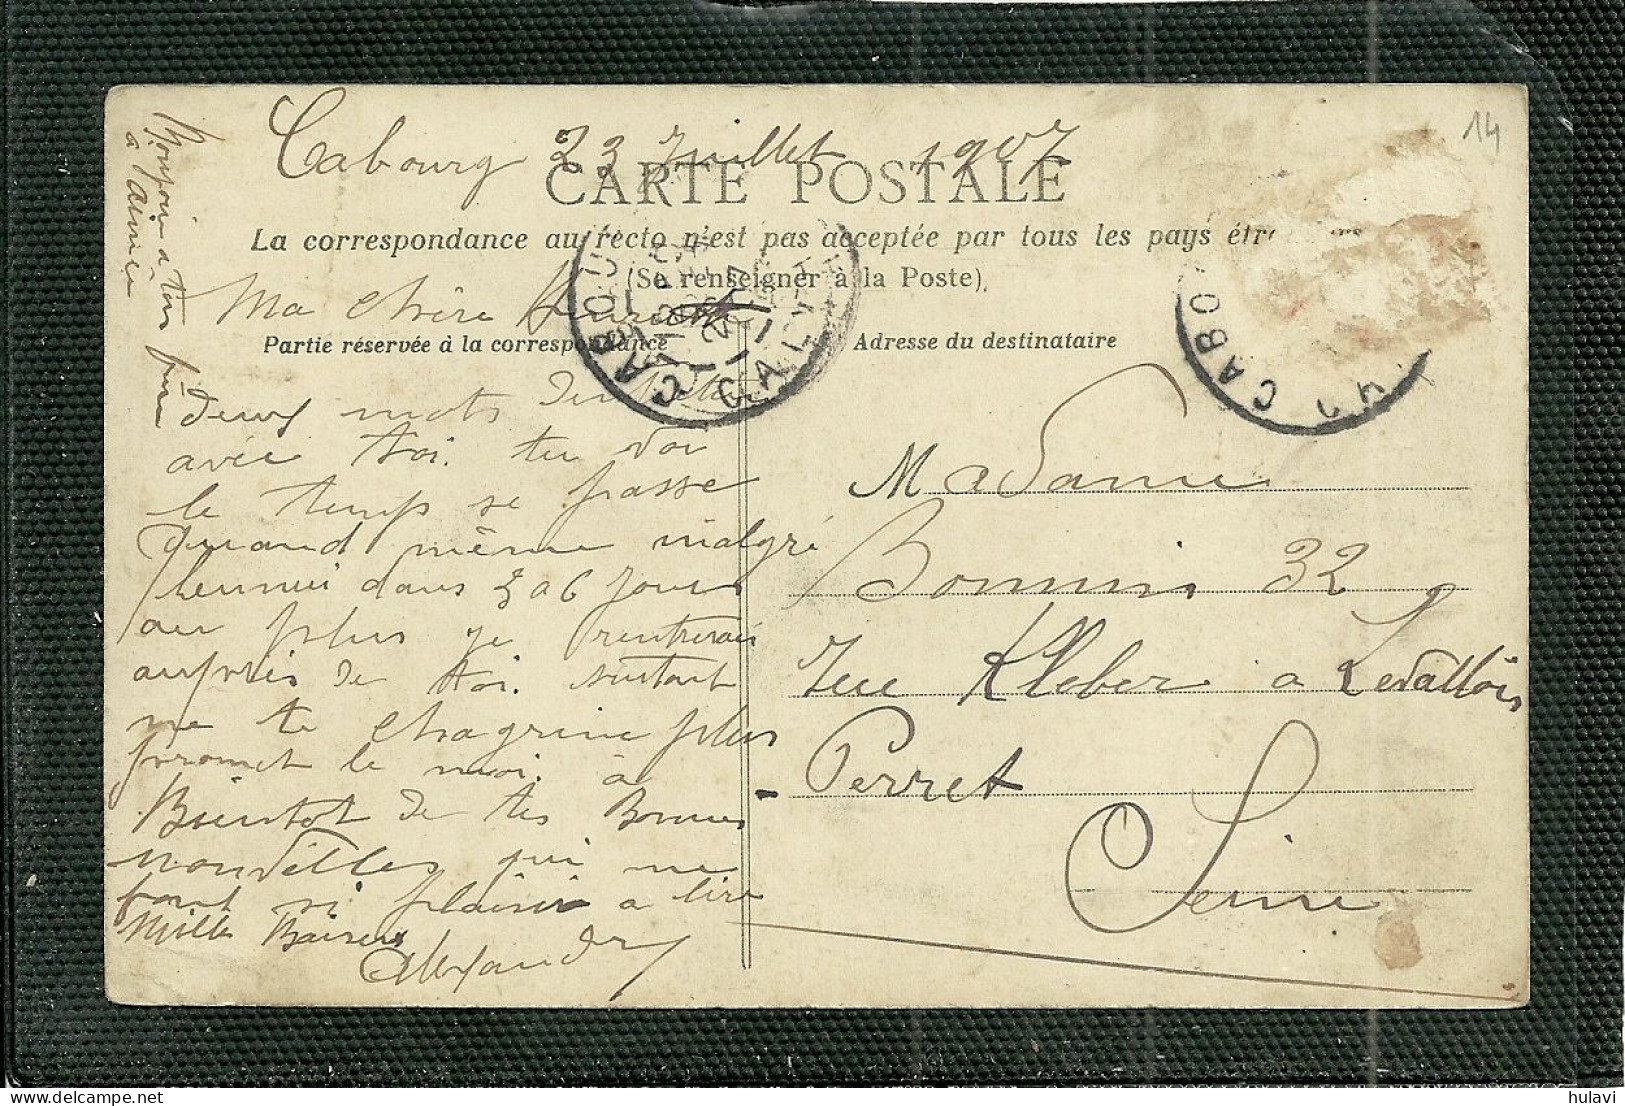 Cabourg 23 Juillet 1907
14
CARTE POSTALE
La correspondance au recto n'est pas acceptée par tous les pays étr
(Se renseigner à la Poste)
Ma chère
Partie réservée à la correspondance
Adresse du destinataire
CABOU
CA
CABO
deux mots
avec toi. tu voi
le temps se passe
quand même malgré
lennui dans 5 a 6 jours
au plus je rentrerais
auprès de toi. surtout
ne te chagrine plus
promet le moi. à
Bientot de tes Bonnes
nouvelles qui me
font si plaisir a lire
Mille Baisers
Alexandre
Bonjour a tous
à Aimée
Madame
Bonnin 32
rue Kleber a Levallois
- Perret
Seine
hulavi